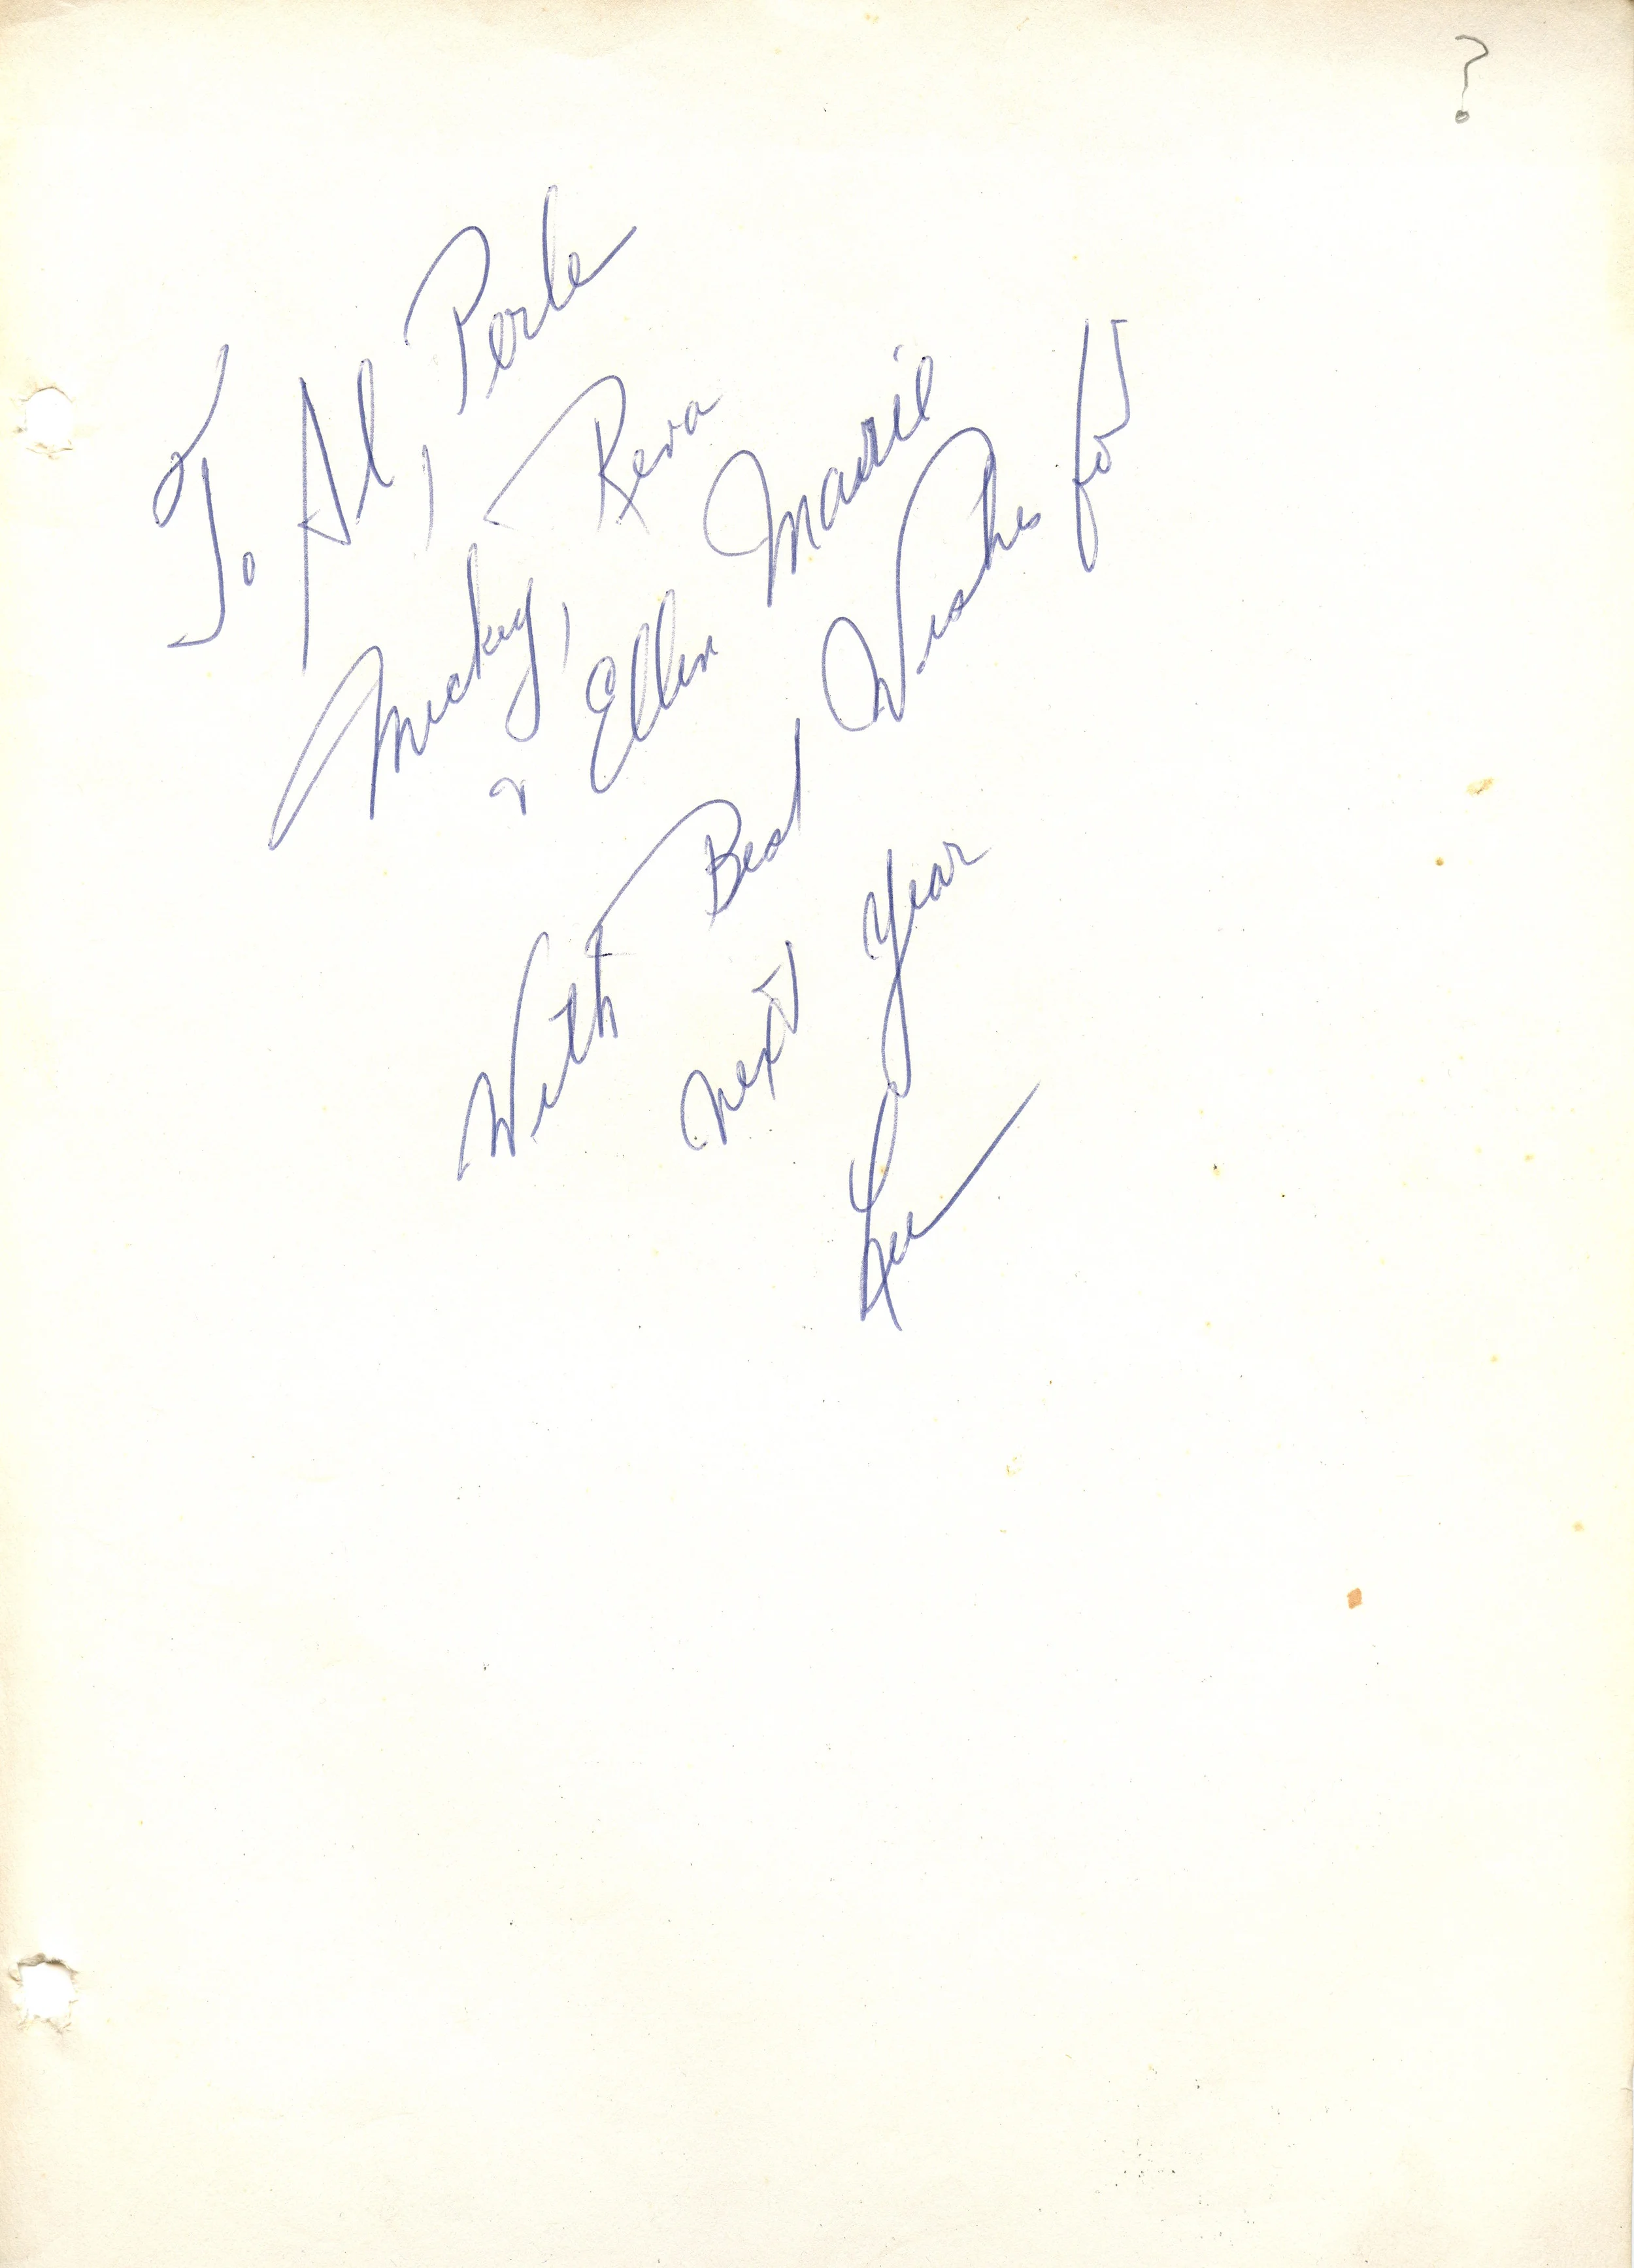 ?
To Al, Perle
Mickey, Reva
& Ellen Mavil
With Best Wishes for
next year
Lee